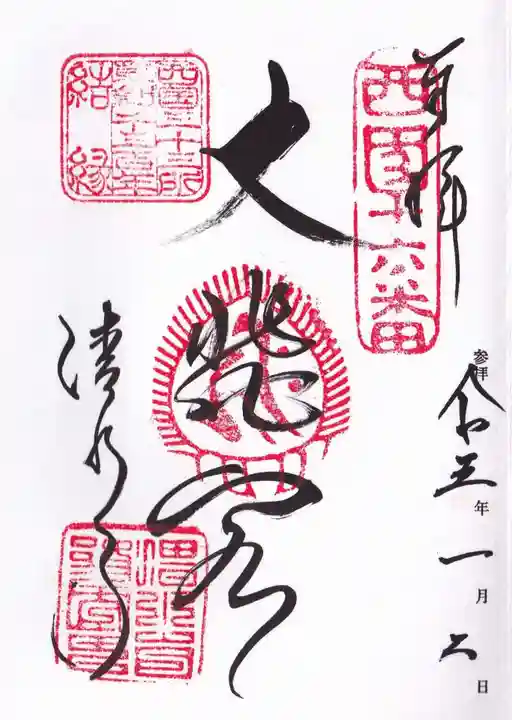 奉拝
西国十六番
大悲閣
西国三十三所
結縁
清水寺
参拝 令和三年一月六日